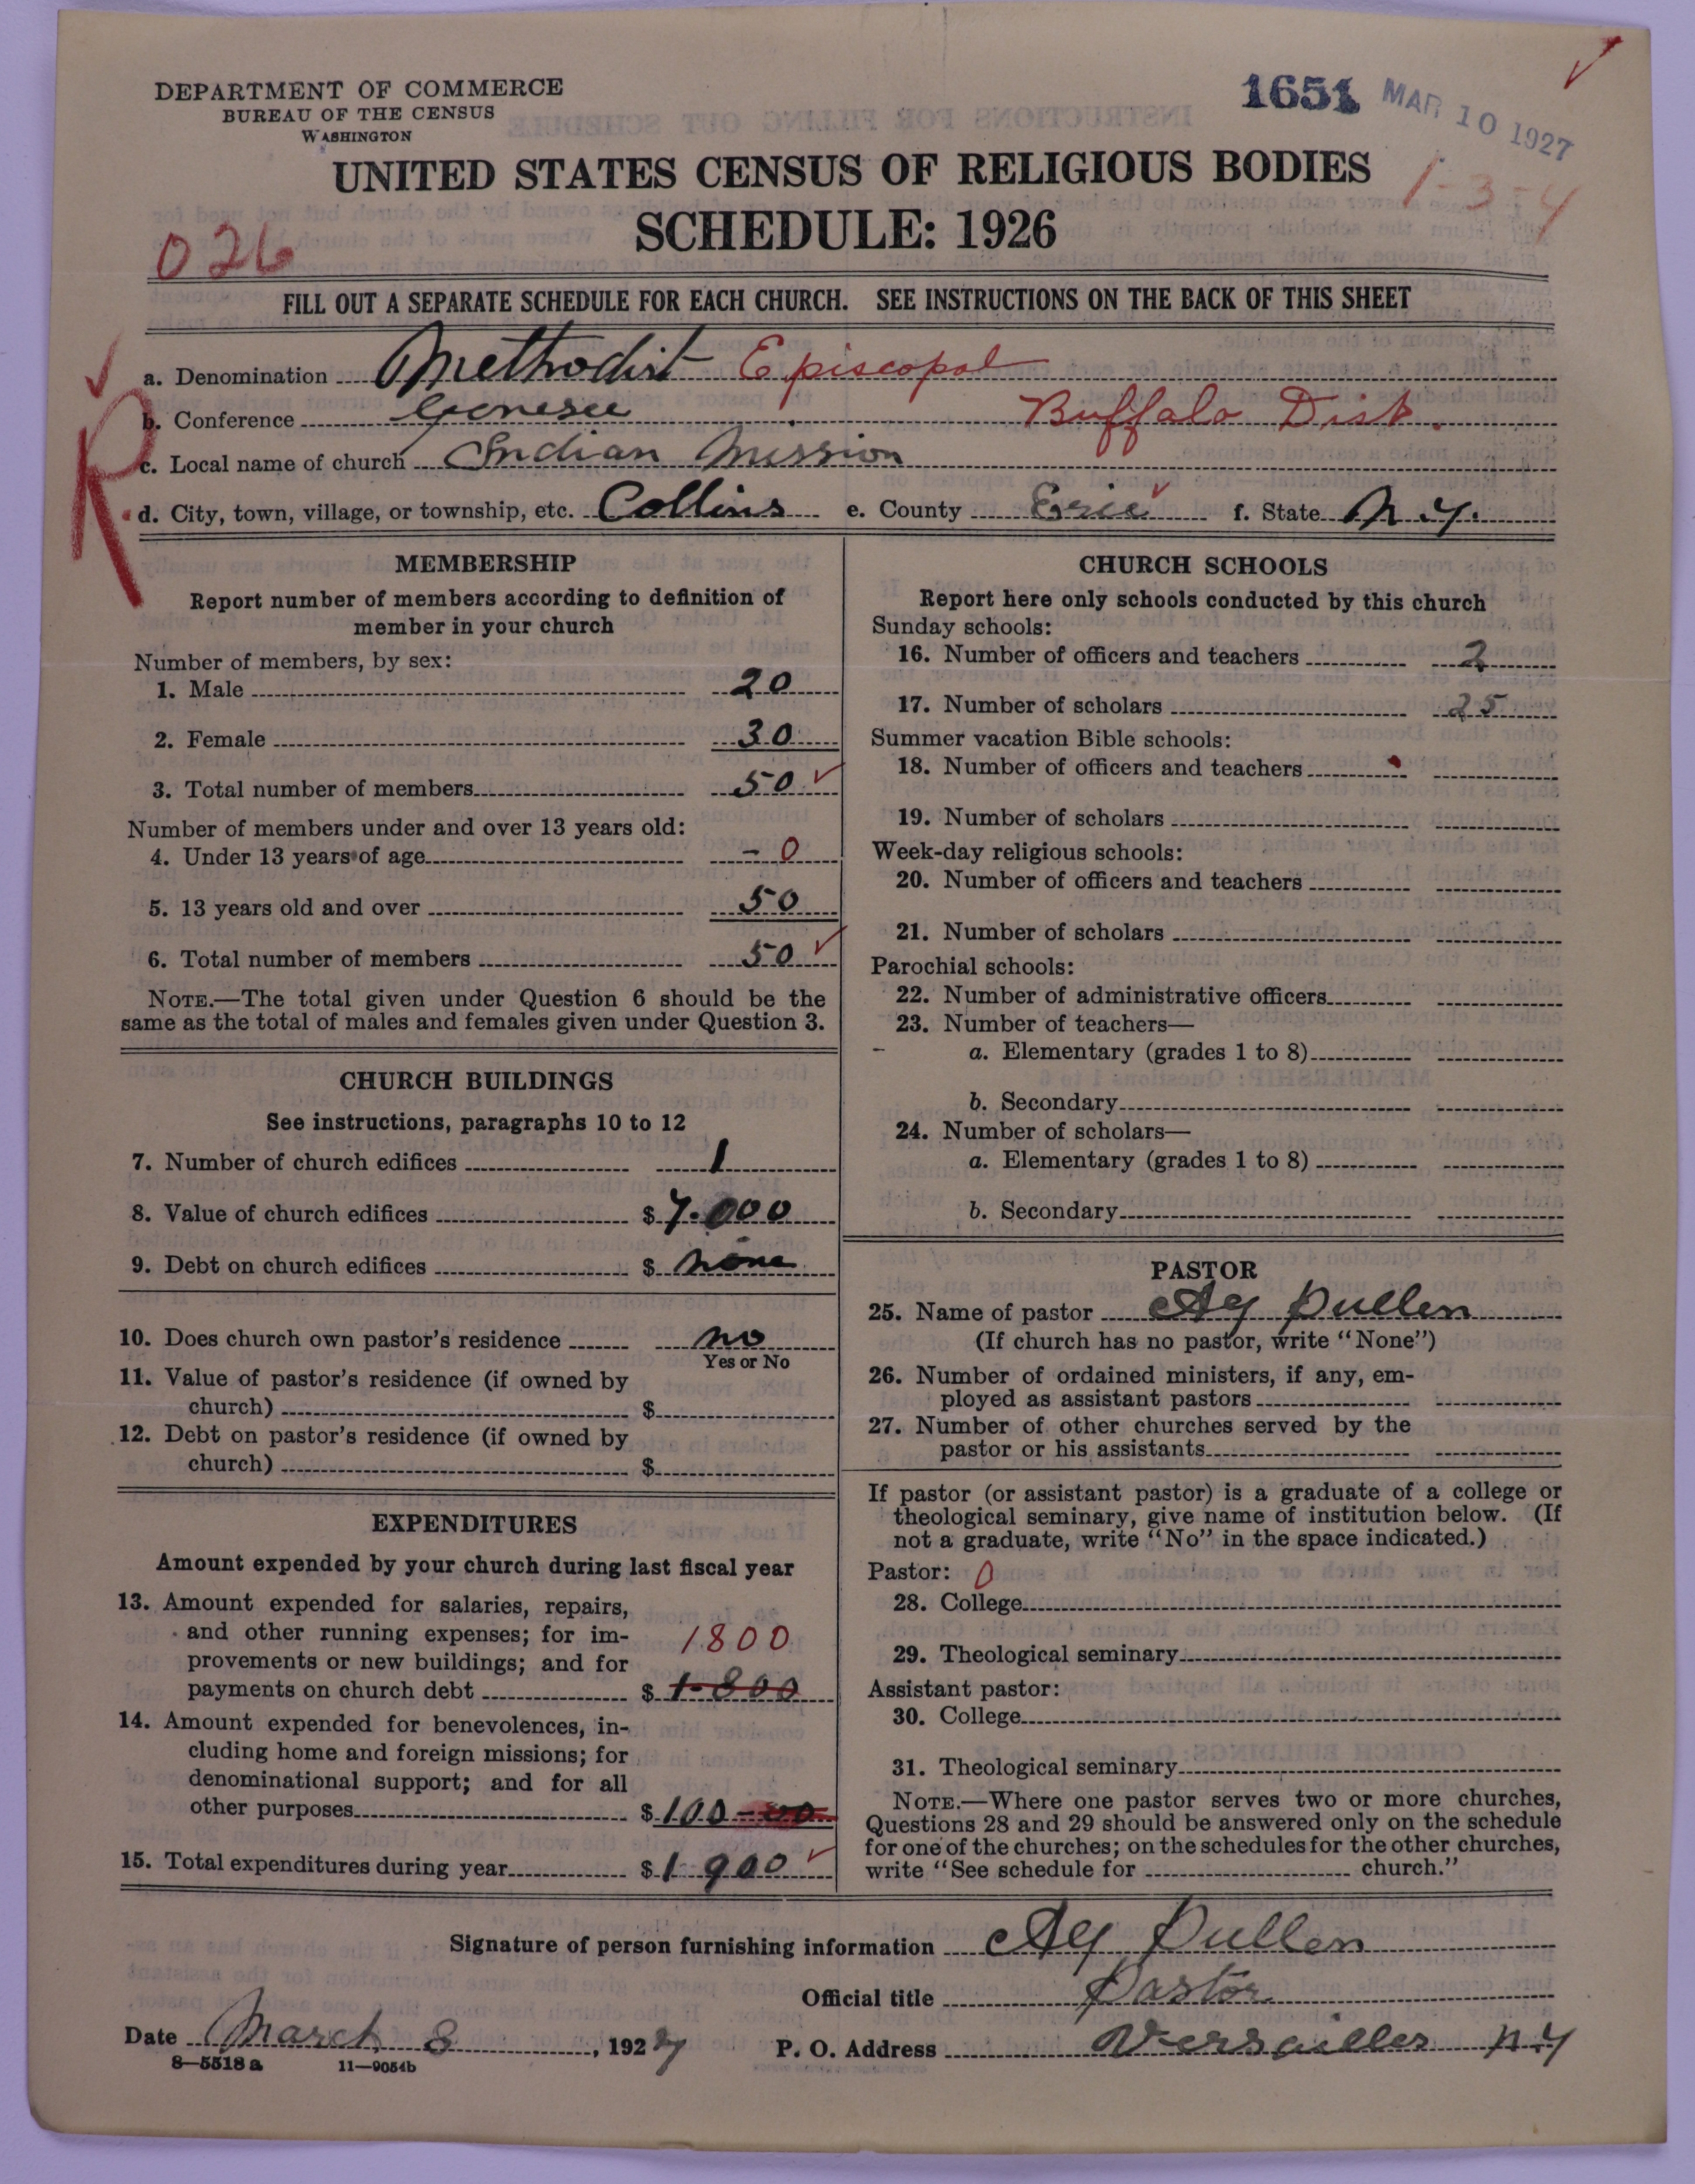 DEPARTMENT OF COMMERCE
BUREAU OF THE CENSUS
WASHINGTON
1651 MAR 10 1927
UNITED STATES CENSUS OF RELIGIOUS BODIES
1-3-4
SCHEDULE: 1926
026
FILL OUT A SEPARATE SCHEDULE FOR EACH CHURCH. SEE INSTRUCTIONS ON THE BACK OF THIS SHEET
a. Denomination Methodist Episcopal
b. Conference Genesee Buffalo Dist.
R
c. Local name of church Indian Mission
d. City, town, village, or township, etc. Collins e. County Erie f. State N.Y.
MEMBERSHIP
Report number of members according to definition of
member in your church
Number of members, by sex:
1. Male 20
2. Female 30
3. Total number of members 50
Number of members under and over 13 years old:
4. Under 13 years of age - 0
5. 13 years old and over 50
6. Total number of members 50
NOTE.—The total given under Question 6 should be the
same as the total of males and females given under Question 3.
CHURCH BUILDINGS
See instructions, paragraphs 10 to 12
7. Number of church edifices 1
8. Value of church edifices $ 7.000
9. Debt on church edifices $ none
10. Does church own pastor's residence no
Yes or No
11. Value of pastor's residence (if owned by
church) $
12. Debt on pastor's residence (if owned by
church) $
EXPENDITURES
Amount expended by your church during last fiscal year
13. Amount expended for salaries, repairs,
and other running expenses; for im-
provements or new buildings; and for
1800
payments on church debt $ 1-800
14. Amount expended for benevolences, in-
cluding home and foreign missions; for
denominational support; and for all
other purposes $ 100-00
15. Total expenditures during year $ 1 900
CHURCH SCHOOLS
Report here only schools conducted by this church
Sunday schools:
16. Number of officers and teachers 2
17. Number of scholars 25
Summer vacation Bible schools:
18. Number of officers and teachers
19. Number of scholars
Week-day religious schools:
20. Number of officers and teachers
21. Number of scholars
Parochial schools:
22. Number of administrative officers
23. Number of teachers—
a. Elementary (grades 1 to 8)
b. Secondary
24. Number of scholars—
a. Elementary (grades 1 to 8)
b. Secondary
PASTOR
25. Name of pastor Pullen
(If church has no pastor, write "None")
26. Number of ordained ministers, if any, em-
ployed as assistant pastors
27. Number of other churches served by the
pastor or his assistants
If pastor (or assistant pastor) is a graduate of a college or
theological seminary, give name of institution below. (If
not a graduate, write "No" in the space indicated.)
Pastor: 0
28. College
29. Theological seminary
Assistant pastor:
30. College
31. Theological seminary
NOTE.—Where one pastor serves two or more churches,
Questions 28 and 29 should be answered only on the schedule
for one of the churches; on the schedules for the other churches,
write "See schedule for church."
Signature of person furnishing information Pullen
Official title Pastor
Date March 8, 1927 P. O. Address Versailles N.Y
8—5518a 11—9054b